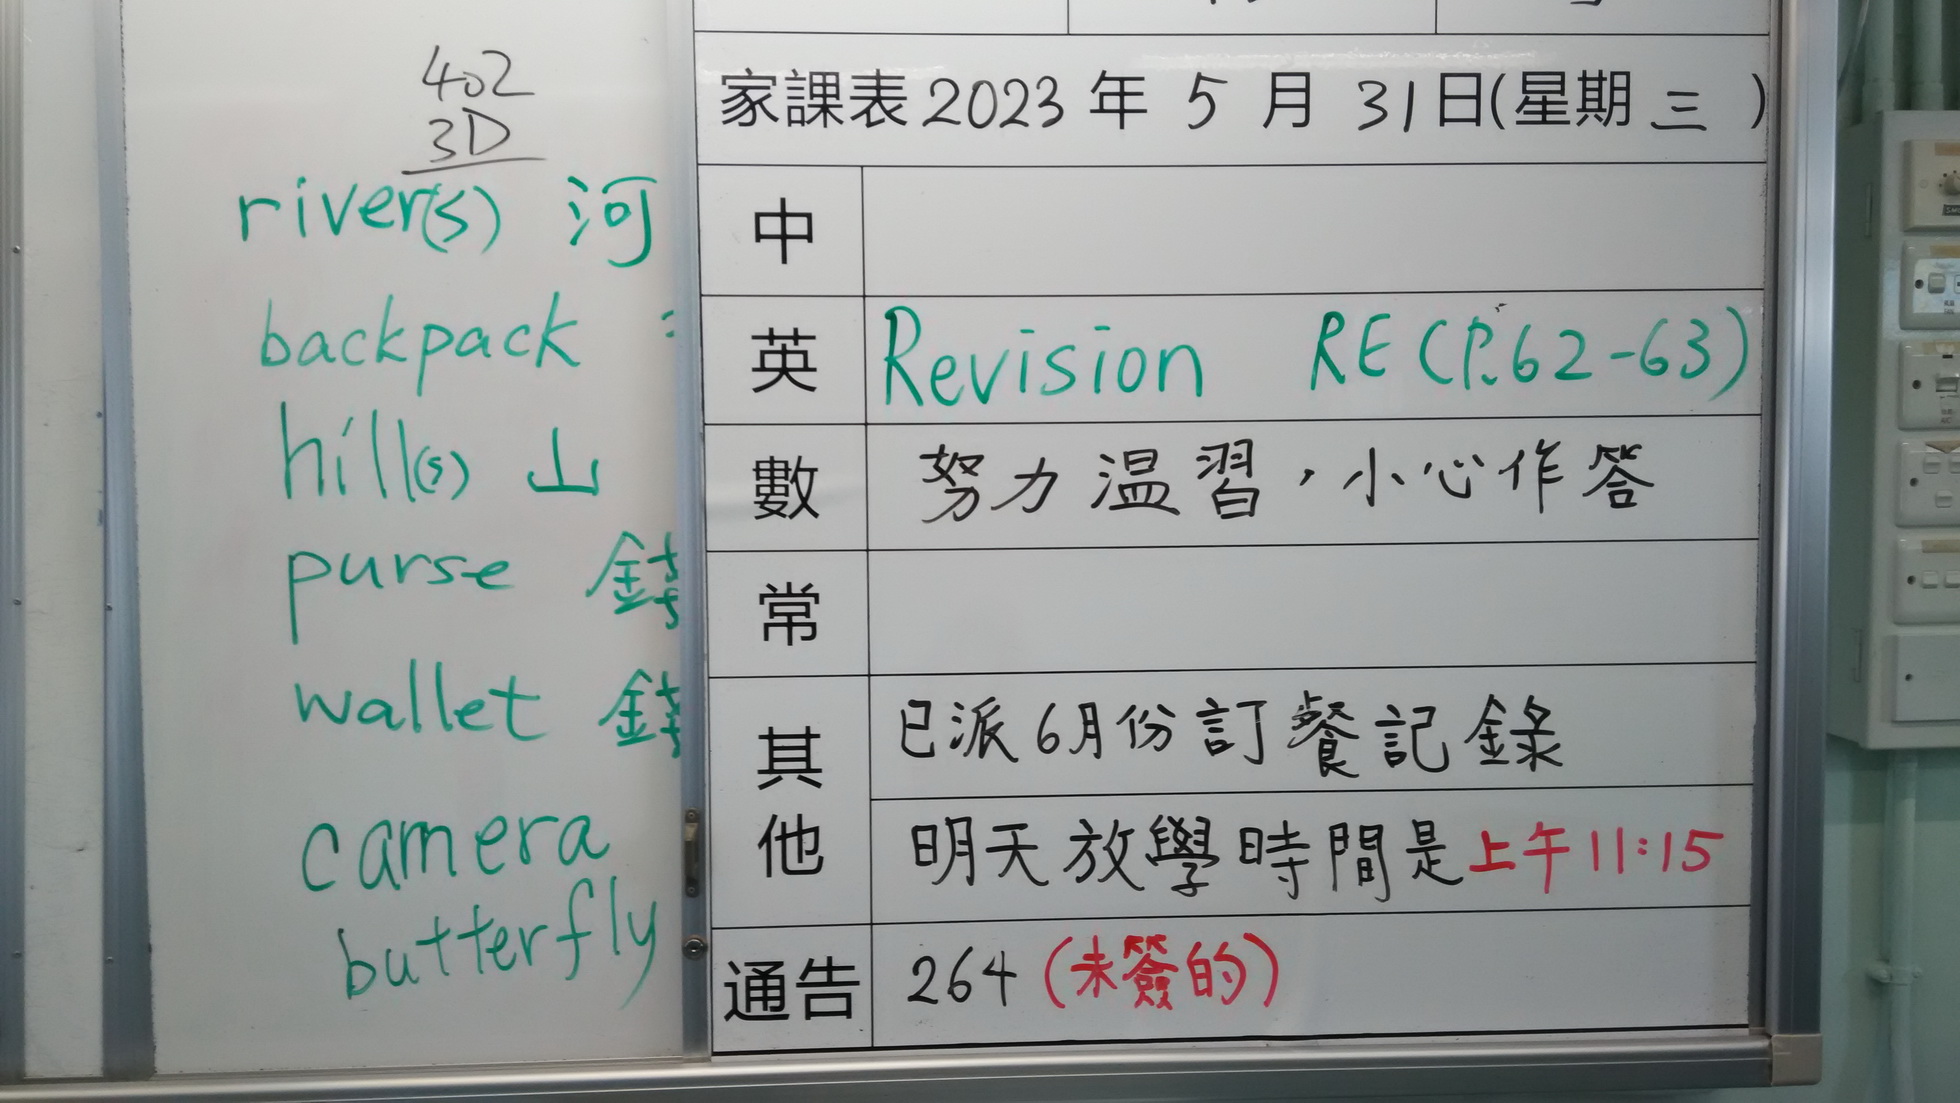 402
3D
river(s) 河
backpack
hill(s) 山
purse
wallet
camera
butterfly
家課表 2023 年 5 月 31 日(星期 三 )
中
英 Revision RE (P.62-63)
數 努力温習，小心作答
常
其他
已派6月份訂餐記錄
明天放學時間是上午11:15
通告 264 (未簽的)